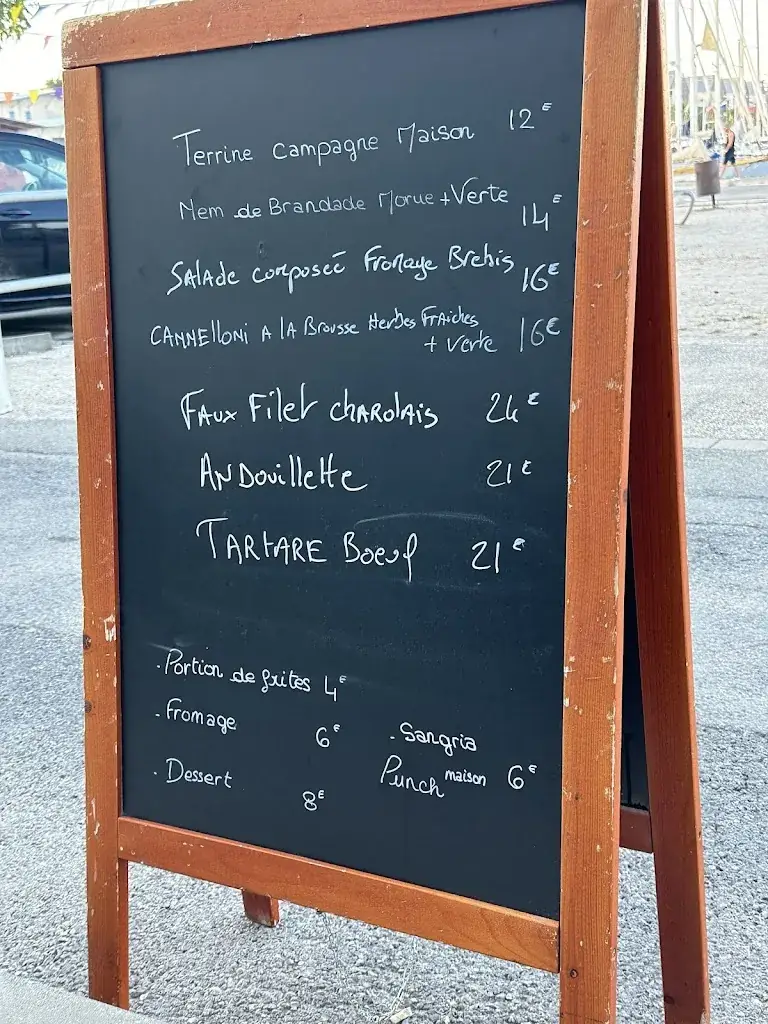 Terrine campagne Maison 12€
Nem de Brandade Morue + Verte 14€
Salade composée Fromage Brebis 16€
CANNELLONI A LA Brousse Herbes FRAICHES
+ Verte 16€
FAUX Filet CHAROLAIS 24€
ANDouillette 21€
TARTARE Boeuf 21€
. Portion de frites 4€
. Fromage 6€
. Dessert 8€
. Sangria
Punch maison 6€